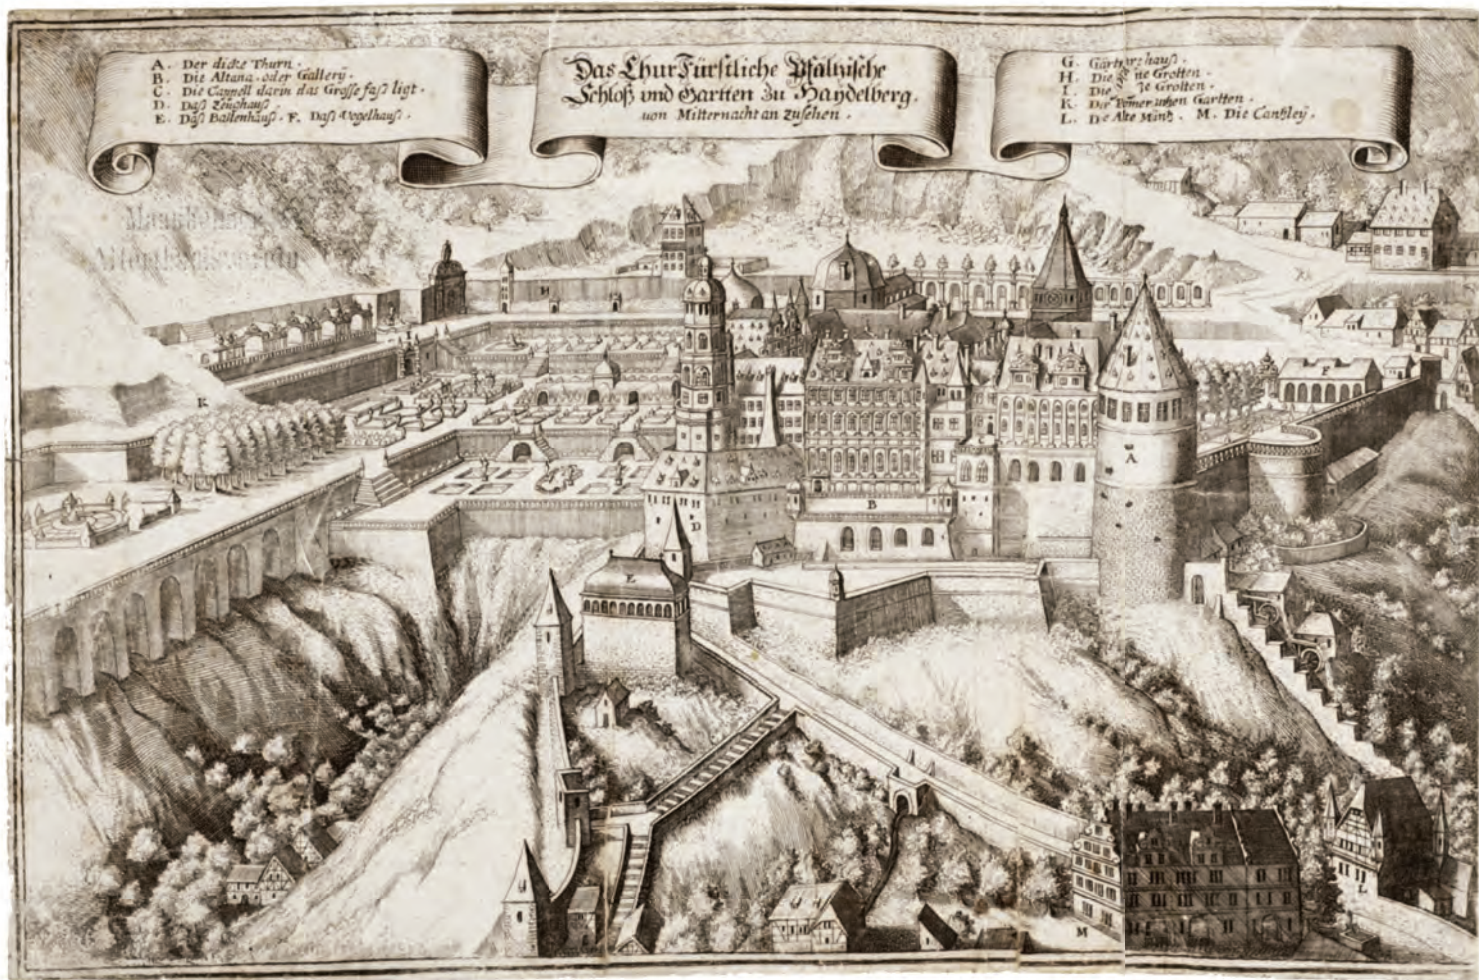 A. Der dicke Thurn.
B. Die Altana. oder Gallerÿ.
C. Die Cappell darin das Grosse faß ligt.
D. Daß Zeughauß.
E. Daß Ballenhauß. F. Daß Vogelhauß.
Das ChurFürstliche Pfältzische
Schloß vnd Gartten zu Haÿdelberg.
von Mitternacht an zusehen.
G. hauß.
H. Die ne Grotten.
I. Die Grotten.
K. Der Gartten.
L. Die Alte Müntz. M. Die Cantzleÿ.
H
K
F
A
B
D
E
L
M